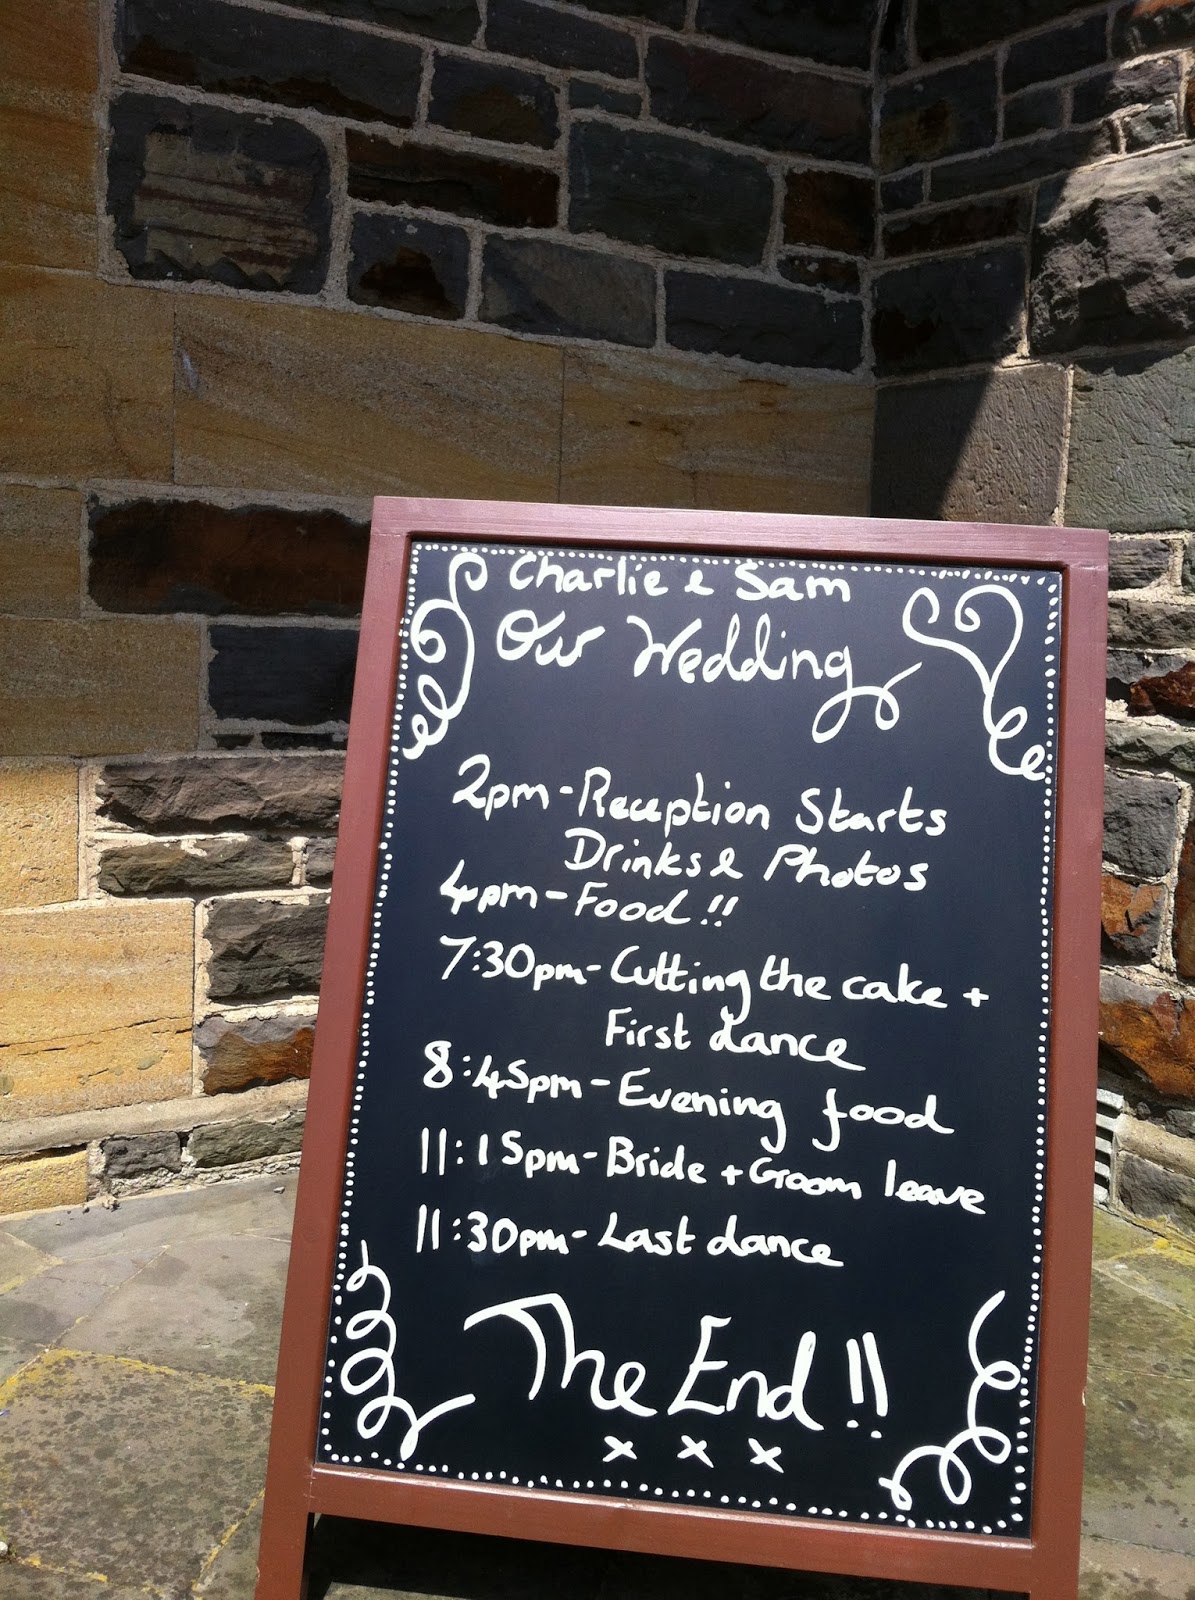 Charlie & Sam
Our Wedding
2pm - Reception Starts
Drinks & Photos
4pm - Food!!
7:30pm - Cutting the cake +
First dance
8:45pm - Evening food
11:15pm - Bride + Groom leave
11:30pm - Last dance
The End!!
x x x